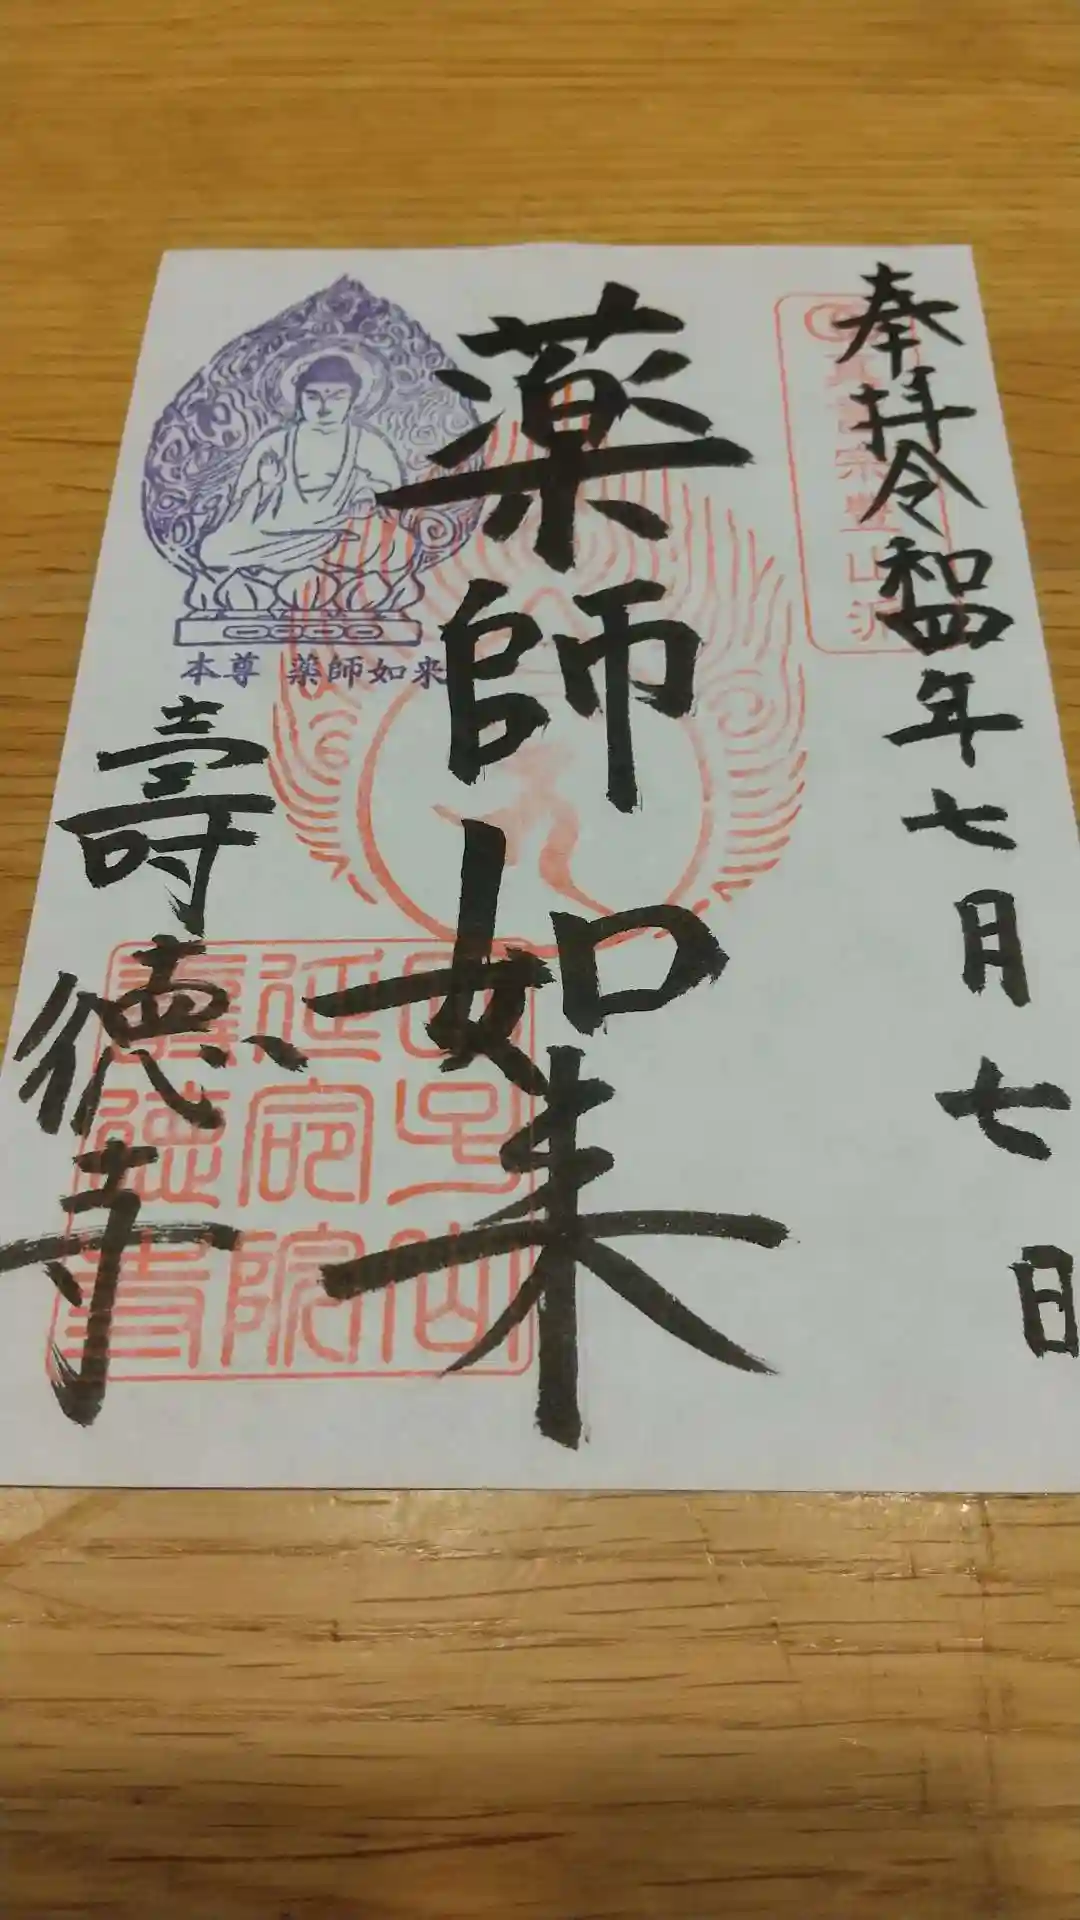 奉拝令和四年七月七日
宗豊山派
薬師如来
本尊 薬師如来
壽徳寺
延命院
壽徳寺